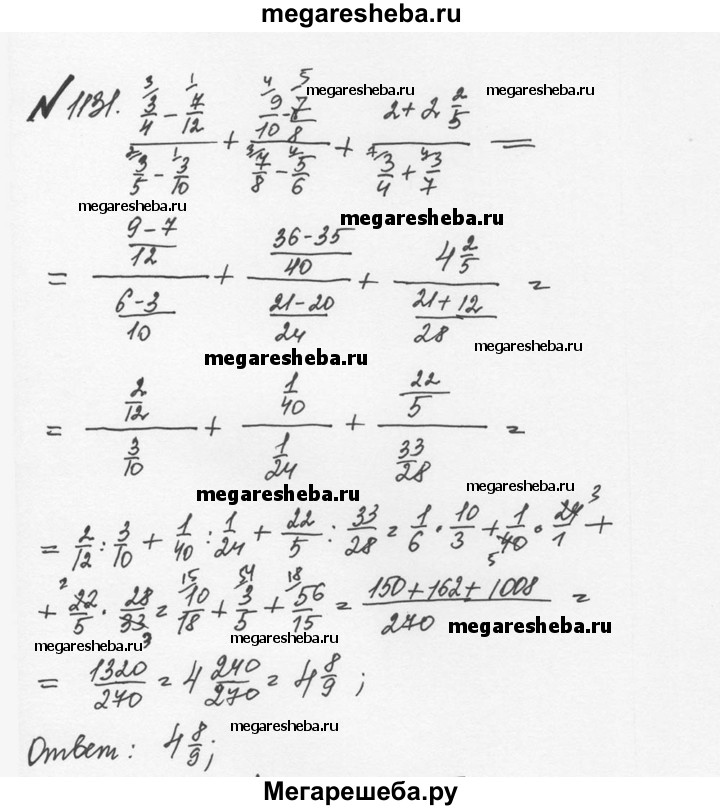 megaresheba.ru
№ 1131. (3/4 - 7/12)/(3/5 - 3/10) + (9/10 - 7/8)/(7/8 - 5/6) + (2 + 2 2/5)/(3/4 + 3/7) =
megaresheba.ru megaresheba.ru
megaresheba.ru megaresheba.ru
= ((9-7)/12)/((6-3)/10) + ((36-35)/40)/((21-20)/24) + (4 2/5)/((21+12)/28) =
megaresheba.ru megaresheba.ru
= (2/12)/(3/10) + (1/40)/(1/24) + (22/5)/(33/28) =
megaresheba.ru megaresheba.ru
= 2/12 : 3/10 + 1/40 : 1/24 + 22/5 : 33/28 = 1/6 · 10/3 + 1/40 · 24/1 +
+ 22/5 · 28/33 = 10/18 + 3/5 + 56/15 = (150+162+1008)/270 =
megaresheba.ru megaresheba.ru megaresheba.ru
= 1320/270 = 4 240/270 = 4 8/9 ;
Ответ: 4 8/9; megaresheba.ru
Мегарешеба.ру